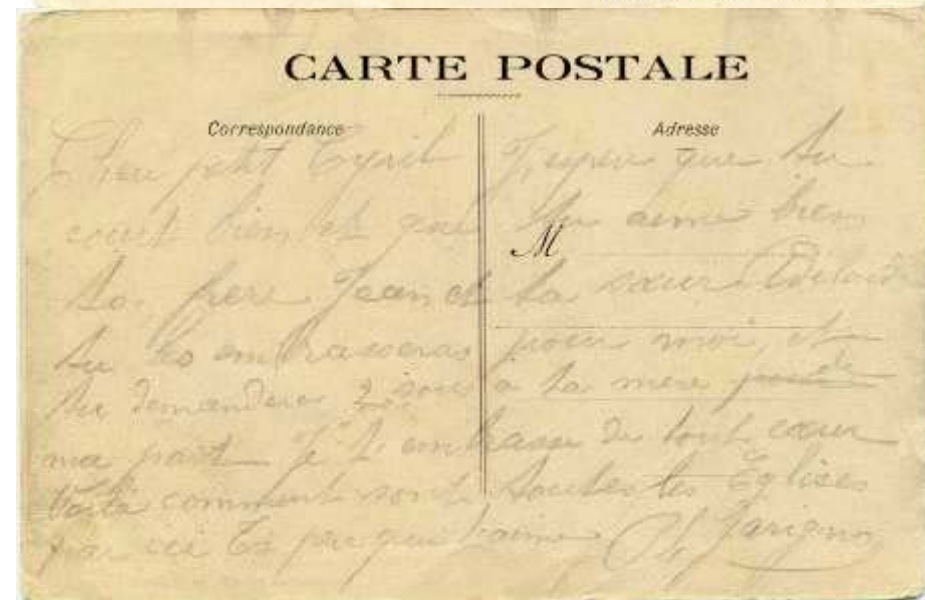 CARTE POSTALE
Correspondance
Adresse
M
Cher petit Cyril J'espere que tu
court bien et que tu aime bien
ta frere Jean et ta sœur
tu les embrasseras pour moi et
tu demandera 2 sous a ta mere de
ma part Je t'embrasse de tout cœur
Voila comment sont toutes les Eglises
par ici Ton pere qui t'aime